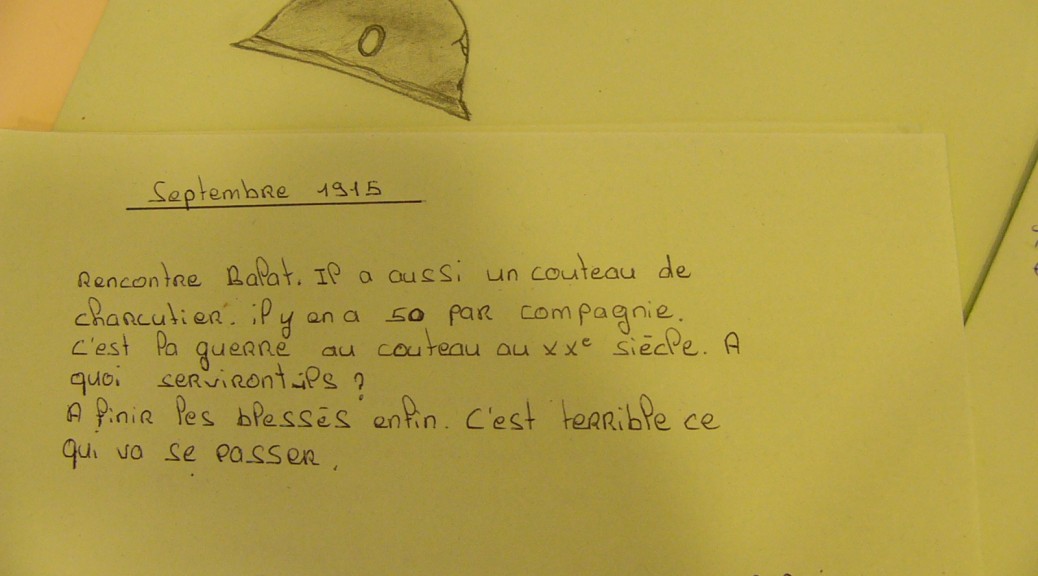 Septembre 1915
Rencontre Balat. Il a aussi un couteau de
charcutier. il y en a 50 par compagnie.
C'est la guerre au couteau au XXe siècle. A
quoi serviront-ils ?
A finir les blessés enfin. C'est terrible ce
qui va se passer.